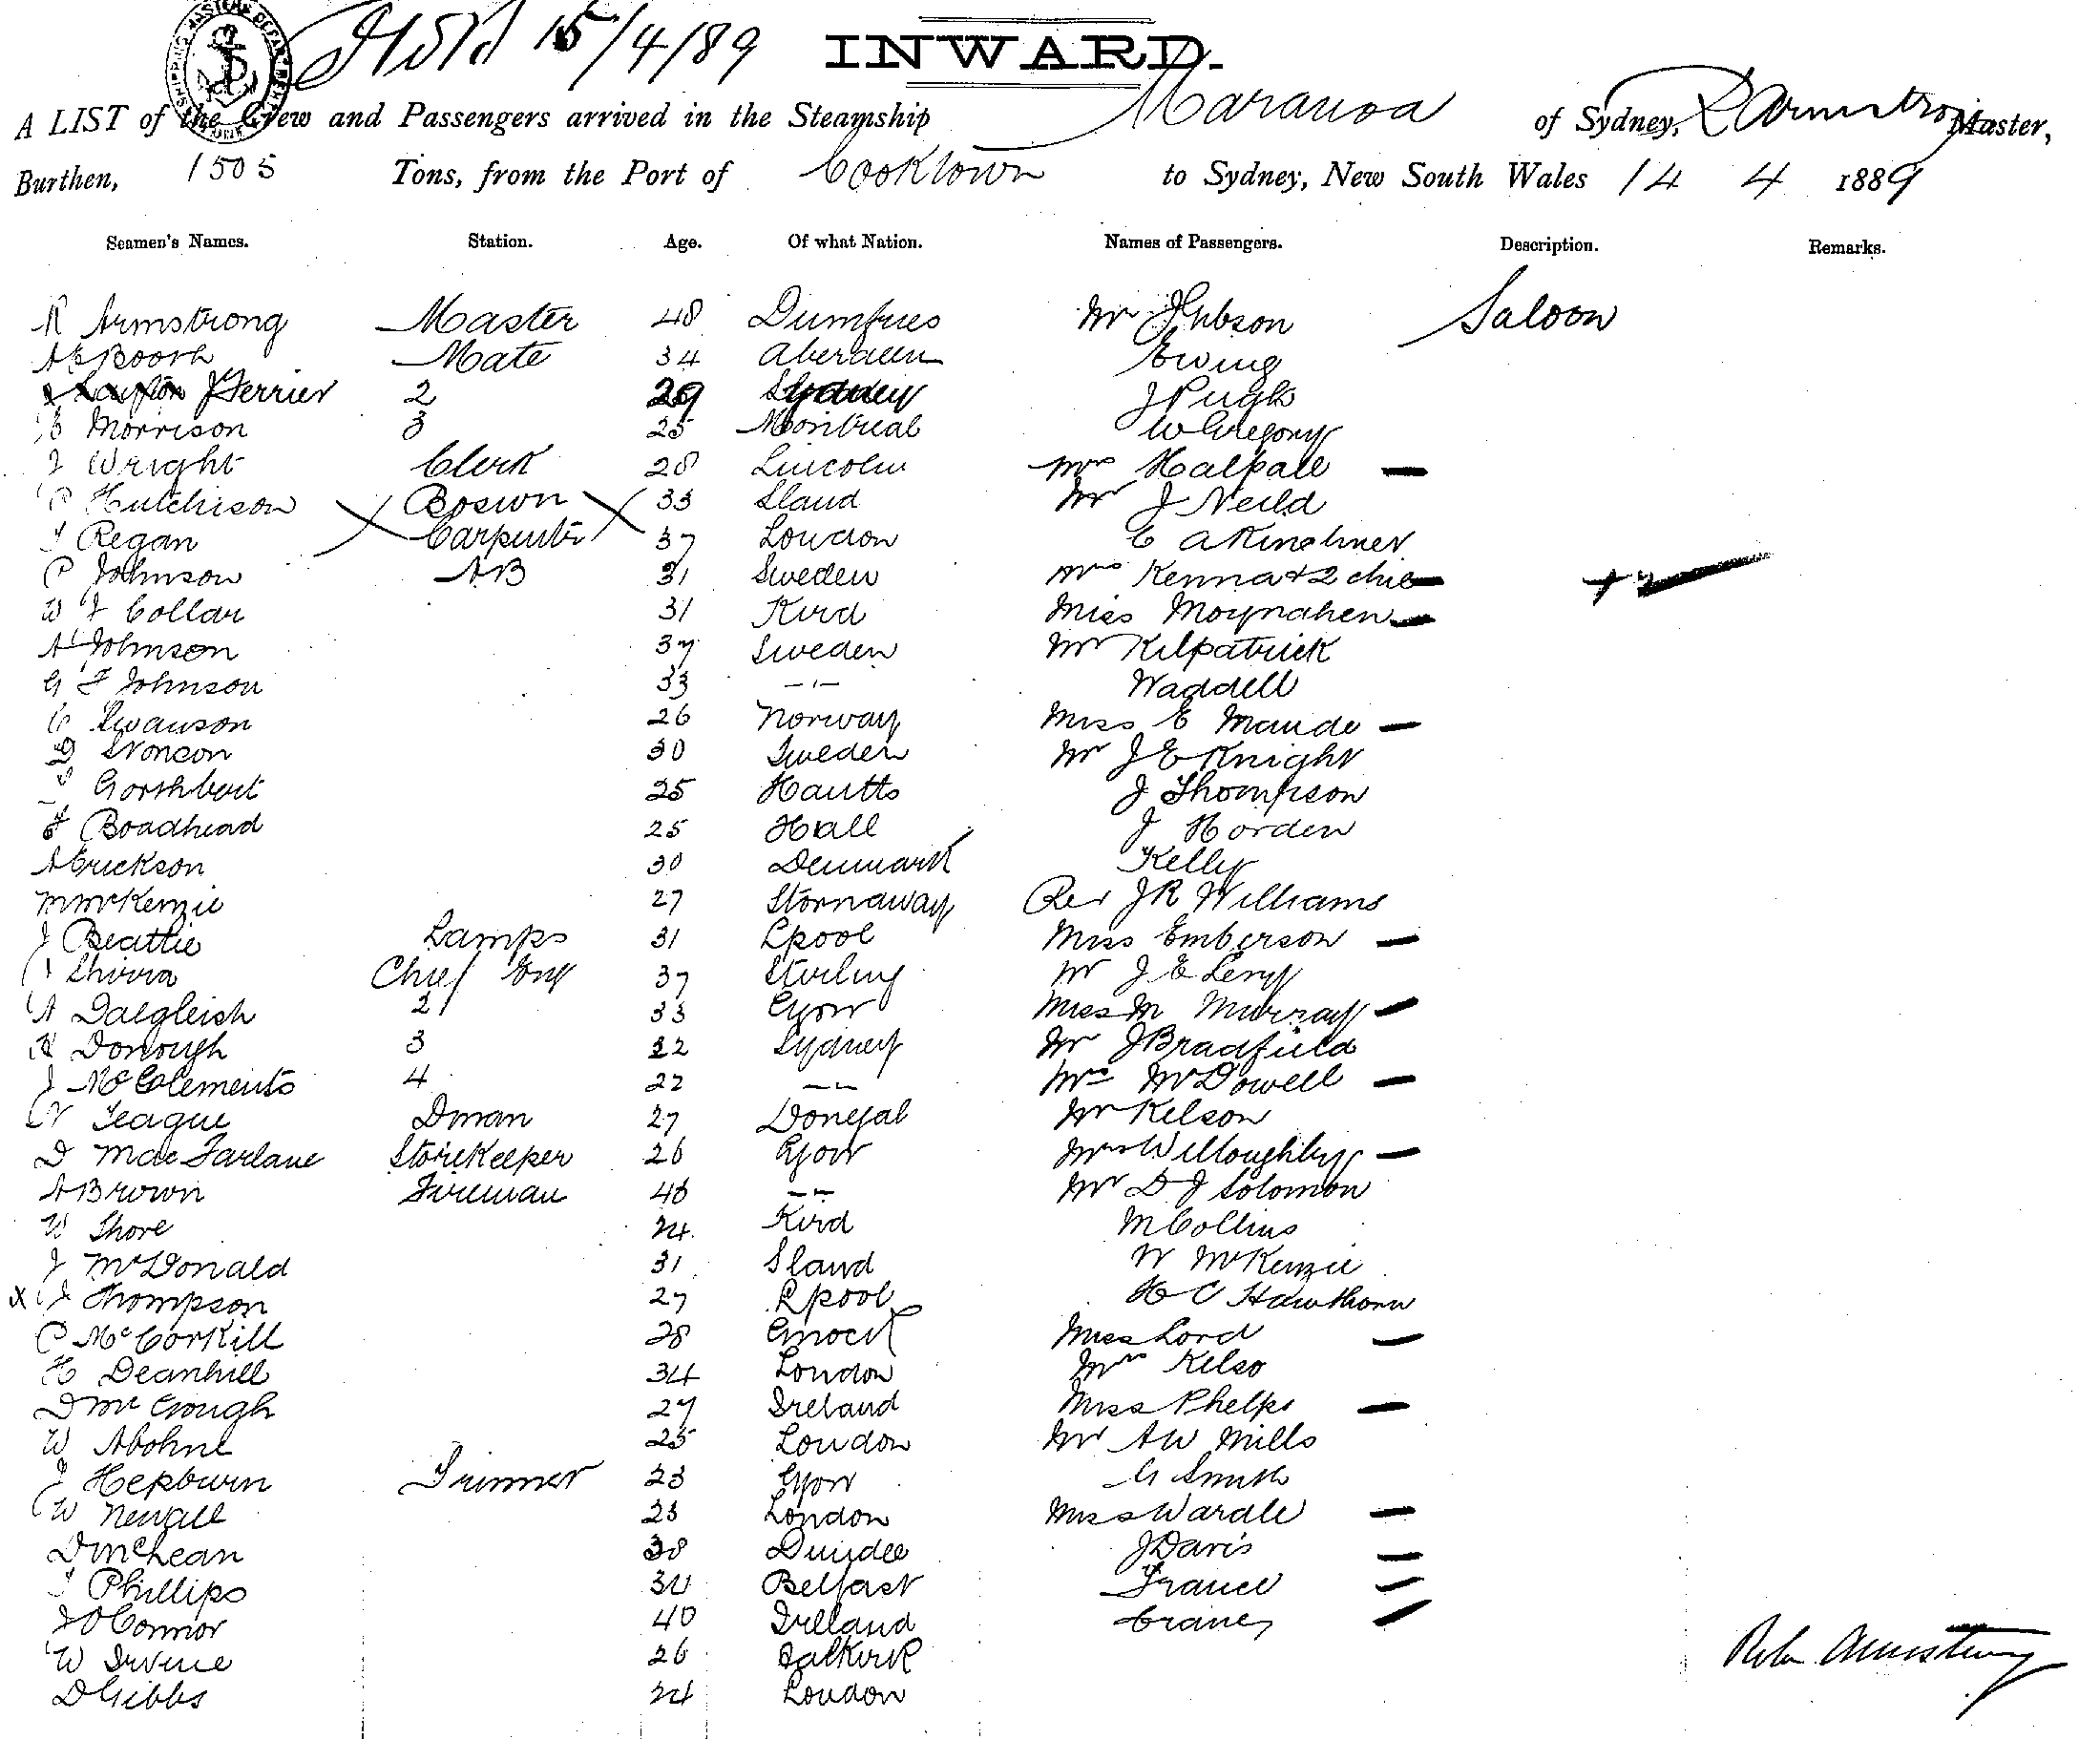 15/4/89
INWARD.
A LIST of the Crew and Passengers arrived in the Steamship Maranoa of Sydney, R Armstrong Master,
Burthen, 1505 Tons, from the Port of Cooktown to Sydney, New South Wales 14 4 1889
Seamen's Names. Station. Age. Of what Nation. Names of Passengers. Description. Remarks.
R Armstrong Master 48 Dumfries Mr Saloon
Booth Mate 34 Aberdeen Ewing
J Ferrier 2 29 Sydney J Pugh
Morrison 3 25 Montreal W Gregory
J Wright Clerk 28 Lincoln Mrs Halpall
Hutchison Boswn 33 Sland Mr J Neild
Regan Carpenter 37 London C A Kinchner
P Johnson AB 31 Sweden Mrs Kenna + 2 chil
W J Collar 31 Kird Miss Moynahen
A Johnson 37 Sweden Mr Kilpatrick
G F Johnson 33 -"- Waddell
C Swanson 26 Norway Miss E Maude
30 Sweden Mr J E Knight
25 J Thompson
Boadhead 25 Hall J Horden
A Erickson 30 Denmark Kelly
M McKenzie 27 Stornaway Rev J R Williams
J Beattie Lamps 31 Lpool Miss Emberson
Shirra Chief Eng 37 Stirling Mr J E Levy
A Dalgleish 2 33 Gow Miss M Murray
Donough 3 22 Sydney Mr J Bradfield
J McClements 4 22 -"- Mrs McDowell
Teague Dman 27 Donegal Mr Kelson
D MacFarlane Storekeeper 26 Gow Mrs Willoughby
A Brown Fireman 46 -"- Mr D J Solomon
W Shore 24 Kird M Collins
J McDonald 31 Sland W McKenzie
x J Thompson 27 Lpool H C Hawthorn
P McCorkill 28 Gnock Miss Lord
H Deanhill 34 London Mrs Kelso
D McGough 27 Ireland Miss Phelps
W Abohne 25 London Mr A W Mills
J Hepburn Trimmer 23 Gow G Smith
W Newall 23 London Miss Wardle
D McLean 38 Dundee J Davis
Phillips 30 Belfast France
J O'Connor 40 Ireland Crane
W Irvine 26 Falkirk Robr Armstrong
D Gibbs 24 London